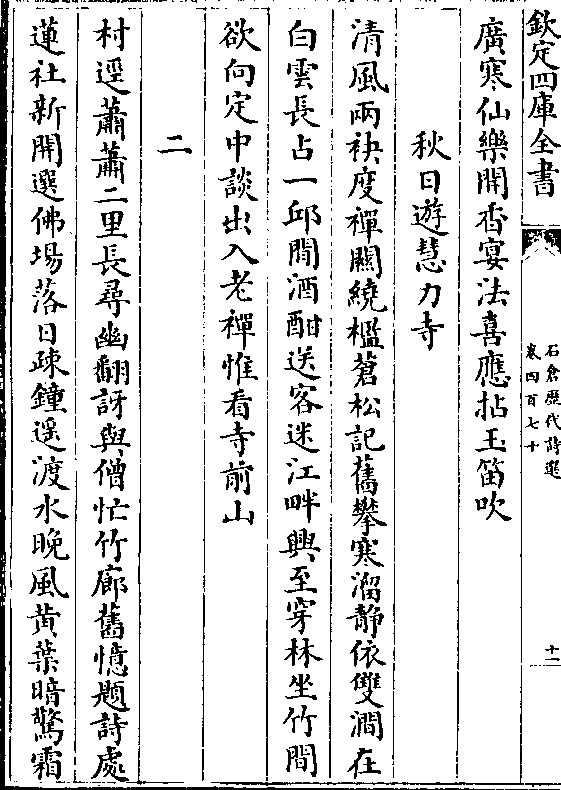 欽定四庫全書
石倉歷代詩選
卷四百七十
十一
廣寒仙樂開香宴法喜應拈玉笛吹
秋日遊慧力寺
清風兩袂度禪關繞檻蒼松記舊攀寒溜靜依雙澗在
白雲長占一邱閒酒酣送客迷江畔興至穿林坐竹間
欲向定中談出入老禪惟看寺前山
二
村逕蕭蕭二里長尋幽翻訝與僧忙竹廊舊憶題詩處
蓮社新開選佛場落日疎鐘遥渡水晚風黄葉暗驚霜